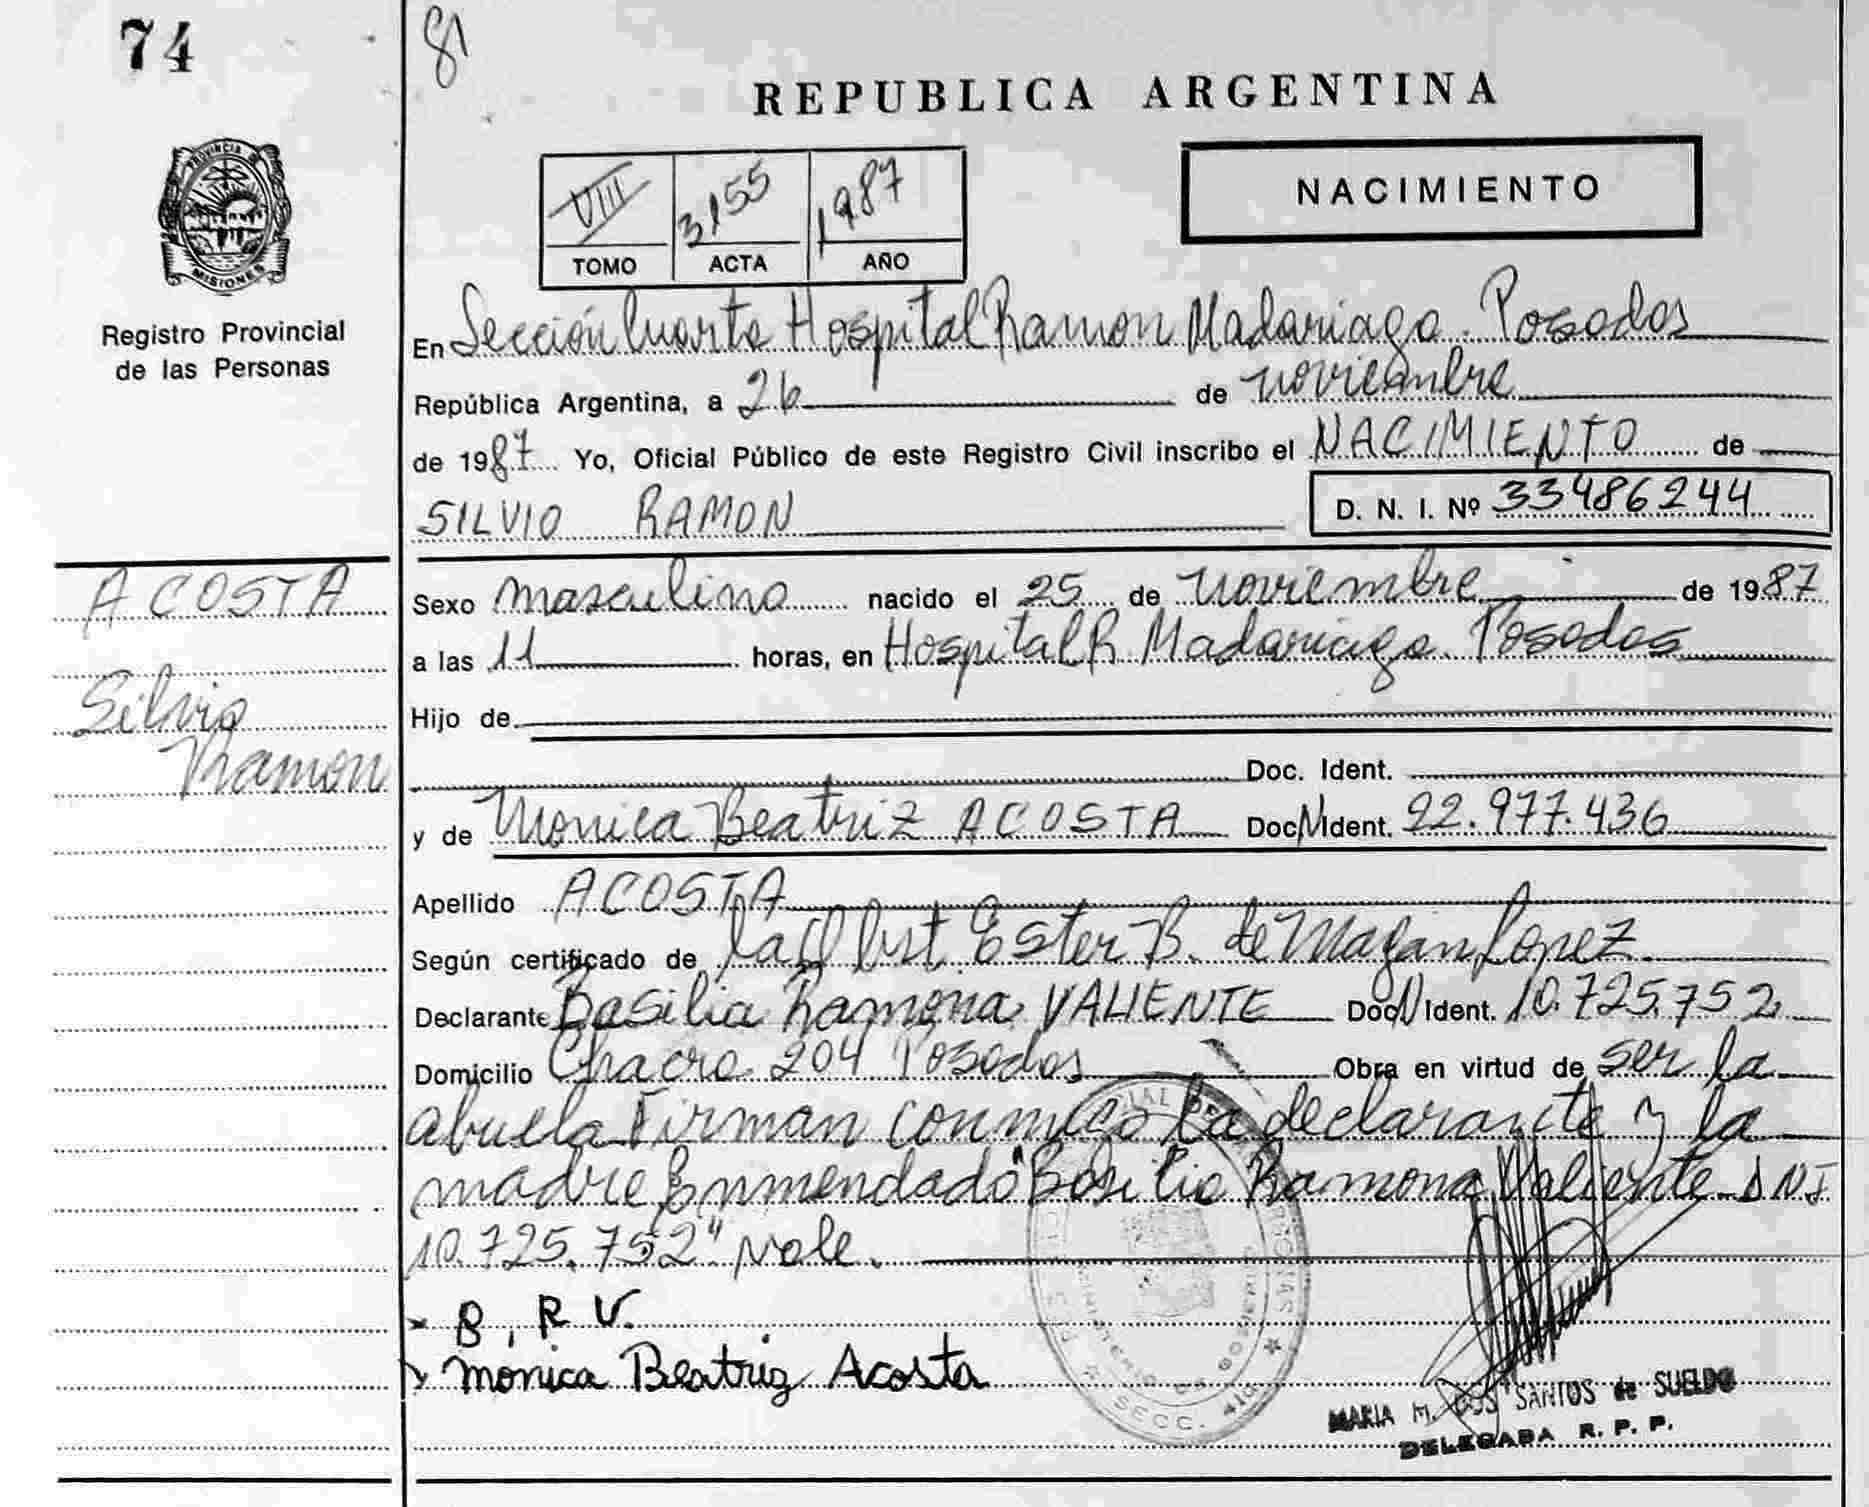 74
81
REPUBLICA ARGENTINA
PROVINCIA DE
MISIONES
VIII 3155 1987
TOMO ACTA AÑO
NACIMIENTO
Registro Provincial
de las Personas
En Sección Cuarta Hospital Ramon Madariaga. Posadas
República Argentina, a 26 de noviembre
de 1987 Yo, Oficial Público de este Registro Civil inscribo el NACIMIENTO de
SILVIO RAMON D. N. I. Nº 33486244
ACOSTA
Silvio
Ramon
Sexo masculino nacido el 25 de noviembre de 1987
a las 11 horas, en Hospital R. Madariaga. Posadas
Hijo de
Doc. Ident.
y de Monica Beatriz ACOSTA Doc N Ident. 22.977.436
Apellido ACOSTA
Según certificado de la Obst. Ester B. de Magan Lopez
Declarante Basilia Ramona VALIENTE Doc N Ident. 10.725.752
Domicilio Chacra 204 Posadas Obra en virtud de ser la
abuela Firman conmigo la declarante y la
madre Enmendado "Basilia Ramona Valiente DNI
10.725.752" vale.
B, R V.
monica Beatriz Acosta
SECC. 4ta
MARIA M. DOS SANTOS de SUELDO
DELEGADA R. P. P.